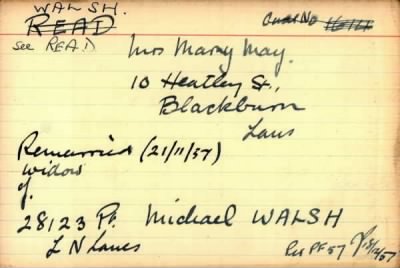 WALSH.
READ
see READ
Mrs Mary May.
10 Heatley St,
Blackburn
Lancs
Remarried (21/11/57)
widow
of.
28123 Pt. Michael WALSH
L N Lancs
PF 57